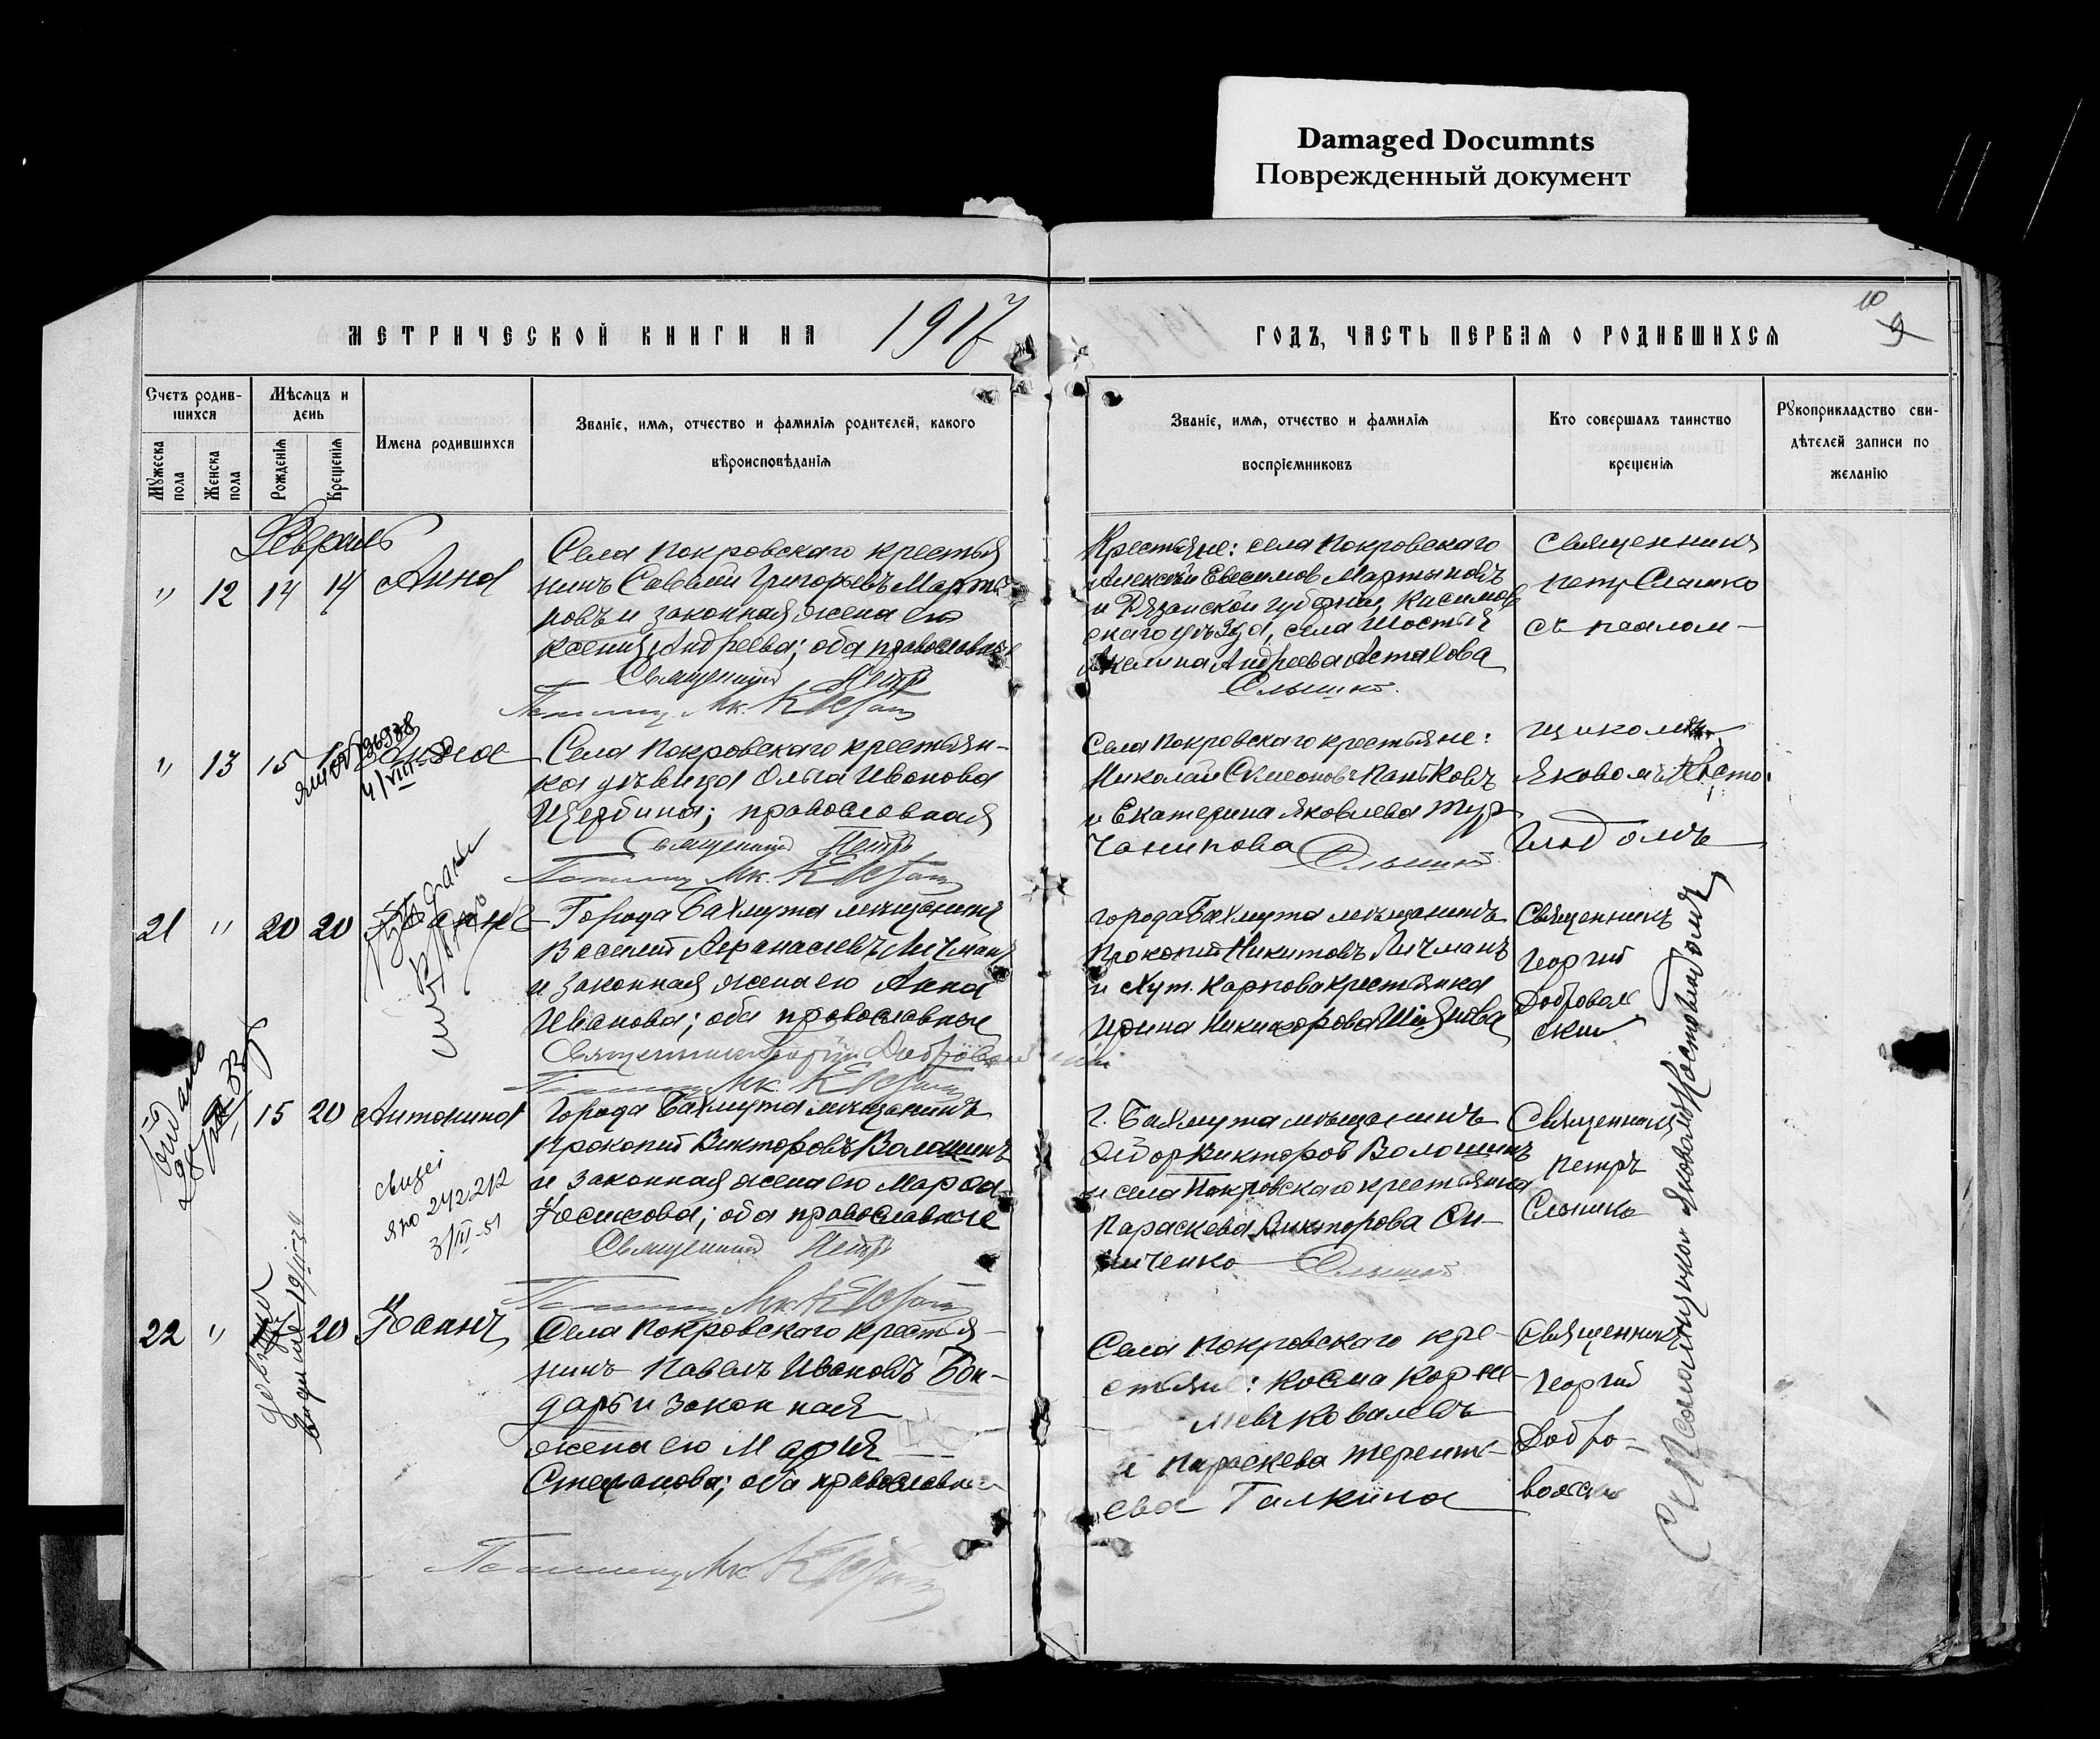 Damaged Documnts
Поврежденный документ
МЕТРИЧЕСКОЙ КНИГИ НА 1917
ГОДЪ, ЧАСТЬ ПЕРВАЯ О РОДИВШИХСЯ
10
9
Счетъ родив-
шихся
Мужеска
пола
Женска
пола
Мѣсяцъ и
день
Рожденія
Крещенія
Имена родившихся
Званіе, имя, отчество и фамилія родителей, какого
вѣроисповѣданія
Званіе, имя, отчество и фамилія
воспріемниковъ
Кто совершалъ таинство
крещенія
Рукоприкладство сви-
дѣтелей записи по
желанію
Февраль
" 12 14 14 Анна
Села Покровскаго крестья
нинъ Савелій Григорьевъ Марты
новъ и законная жена его
Ксенія Андреева; оба православные
Священникъ Петръ
Крестьяне: села Покровскаго
Алексѣй Евсимов Мартыновъ
и Рязанской губерніи, Касимов
скаго уѣзда, села Шостья
Акелина Андреева Астахова
Слышко
Священникъ
Петр Слышко
съ псалом-
" 13 15
Села Покровскаго крестьян-
ка дѣвица Ольга Иванова
Щербина; православная
Священникъ Петръ
Села Покровскаго крестьяне:
Николай Симеоновъ Паньковъ
и Екатерина Яковлева Тур
чанинова Слышко
щикомъ
Яковомъ Косто-
глодомъ
21 " 20 20
Города Бахмута мѣщанинъ
Василій Афанасіевъ Личманъ
и законная жена его Анна
Иванова; оба православные
Священникъ Георгій Добровольскій
Города Бахмута мѣщанинъ
Прокопій Никитовъ Личманъ
и хут. Карпова крестьянка
Ирина Никифорова
Священникъ
Георгій
Доброволь
скій
15 20 Антонина
Города Бахмута мѣщанинъ
Прокопій Викторовъ Волошинъ
и законная жена его Марфа
Иосифова; оба православные
Священникъ Петръ
г. Бахмута мѣщанинъ
Викторов Волошинъ
и села Покровскаго крестьянка
Параскева Викторова Он-
ниченко Слышко
Священникъ
Петръ
Слышко
свидет
ЯЮ 242212
3/III-51
22 " 20 Іоаннъ
Села Покровскаго крестья-
нинъ Павелъ Ивановъ Бон-
дарь и законная
жена его Марія
Степанова; оба православные
Села Покровскаго кре-
стьяне: Косма Корне-
ліевъ Ковалевъ
и Параскева Теренть-
ева Галкина
Священникъ
Георгій
Добро-
вольскій
Съ Псаломщикомъ Яковомъ Костоглодомъ